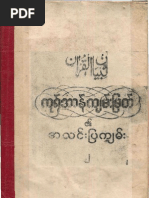 القرآن
ကုရ်အာန်ကျမ်းမြတ်
၏
အလင်းပြကျမ်း
၂